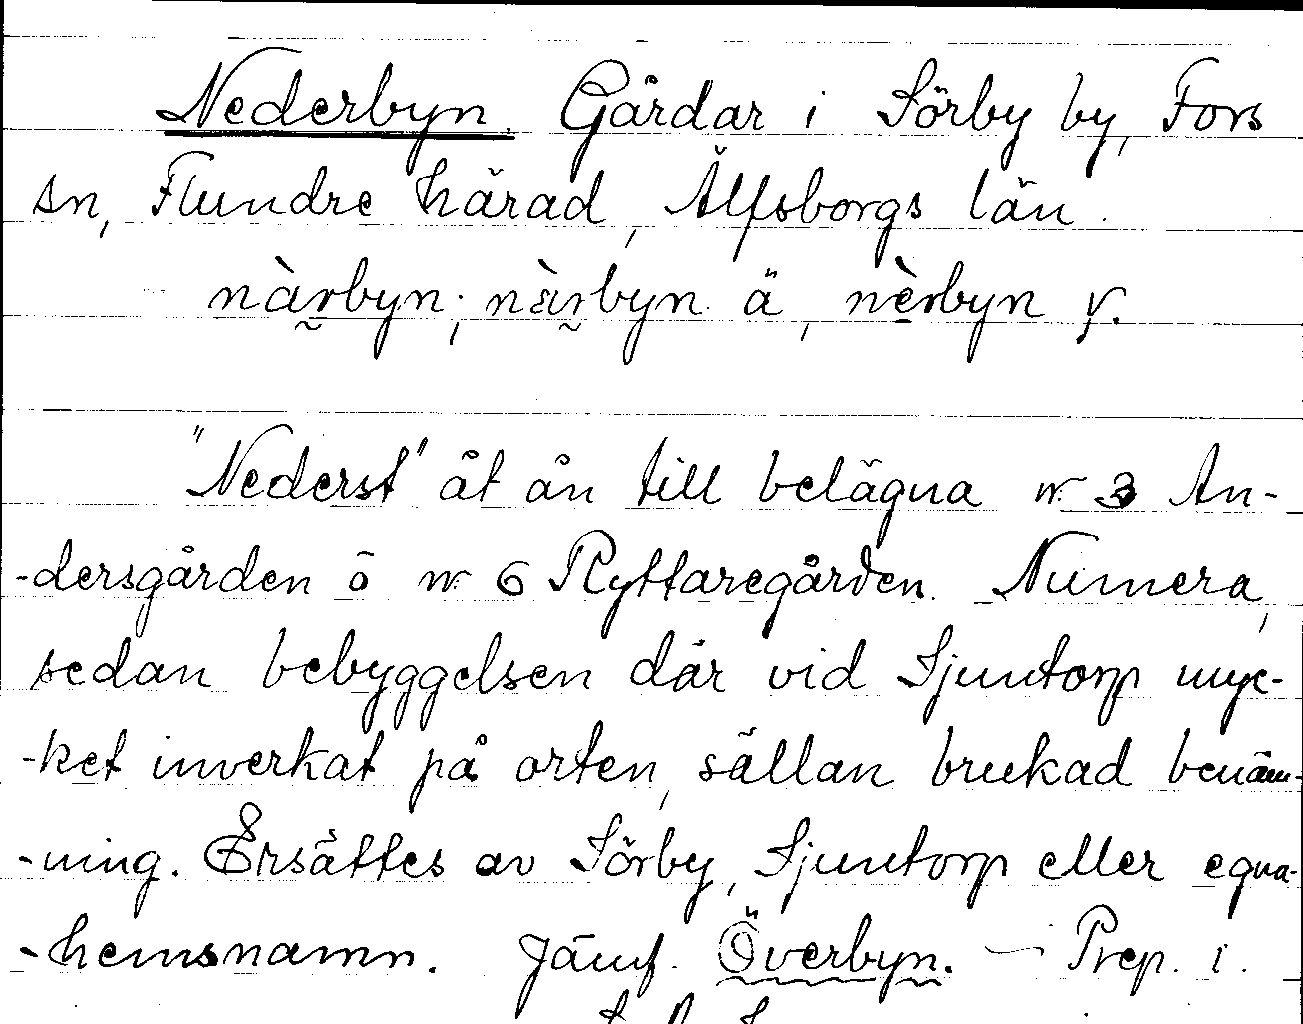 Nederbyn. Gårdar i Sörby by, Fors
sn, Flundre härad, Älfsborgs län.
nàrbyn; nä̀rbyn ä, nèrbyn y.
"Nederst" åt ån till belägna nr 3 An-
-dersgården o nr 6 Ryttaregården. Numera,
sedan bebyggelsen där vid Sjuntorp myc-
-ket inverkat på orten, sällan brukad benäm-
-ning. Ersättes av Sörby, Sjuntorp eller egna-
-hemsnamn. Jämf. Överbyn. — Prep. i.